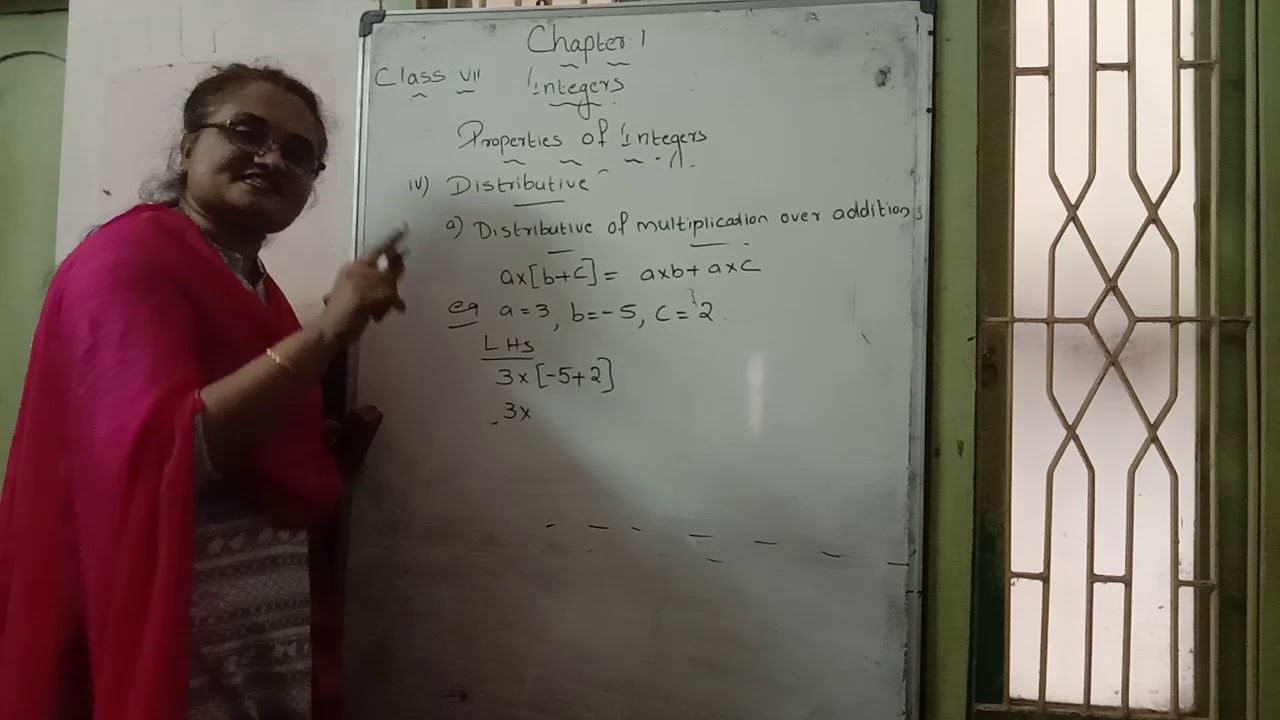 Chapter 1
Class VII Integers
Properties of Integers
iv) Distributive
a) Distributive of multiplication over additions
a×[b+c] = a×b+a×c
eg a=3, b=-5, c=2
LHS
3×[-5+2]
3×